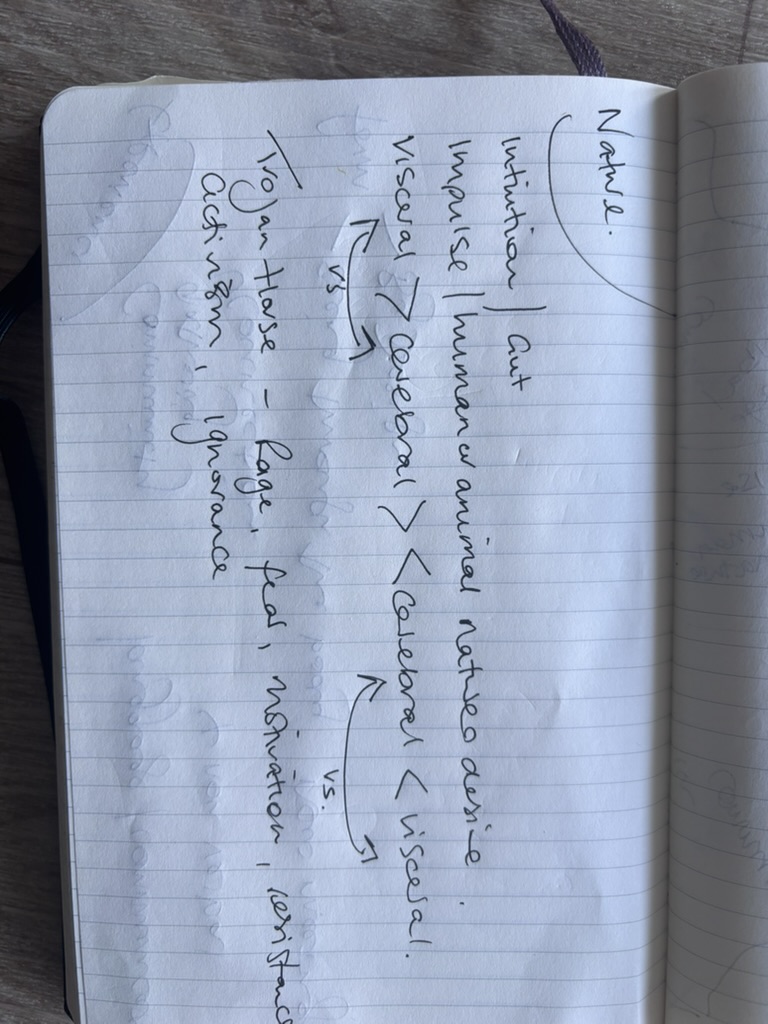 Nature.
Intuition / Gut
Impulse / human or animal nature desire.
visceral > cerebral > < cerebral < visceral.
vs vs.
Trojan Horse - Rage, fear, motivation, resistance
activism, ignorance